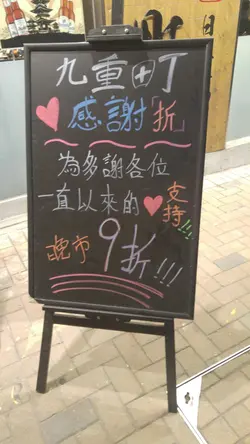 九重町
感謝折
為多謝各位
一直以來的♥支持!!!
晚市9折!!!